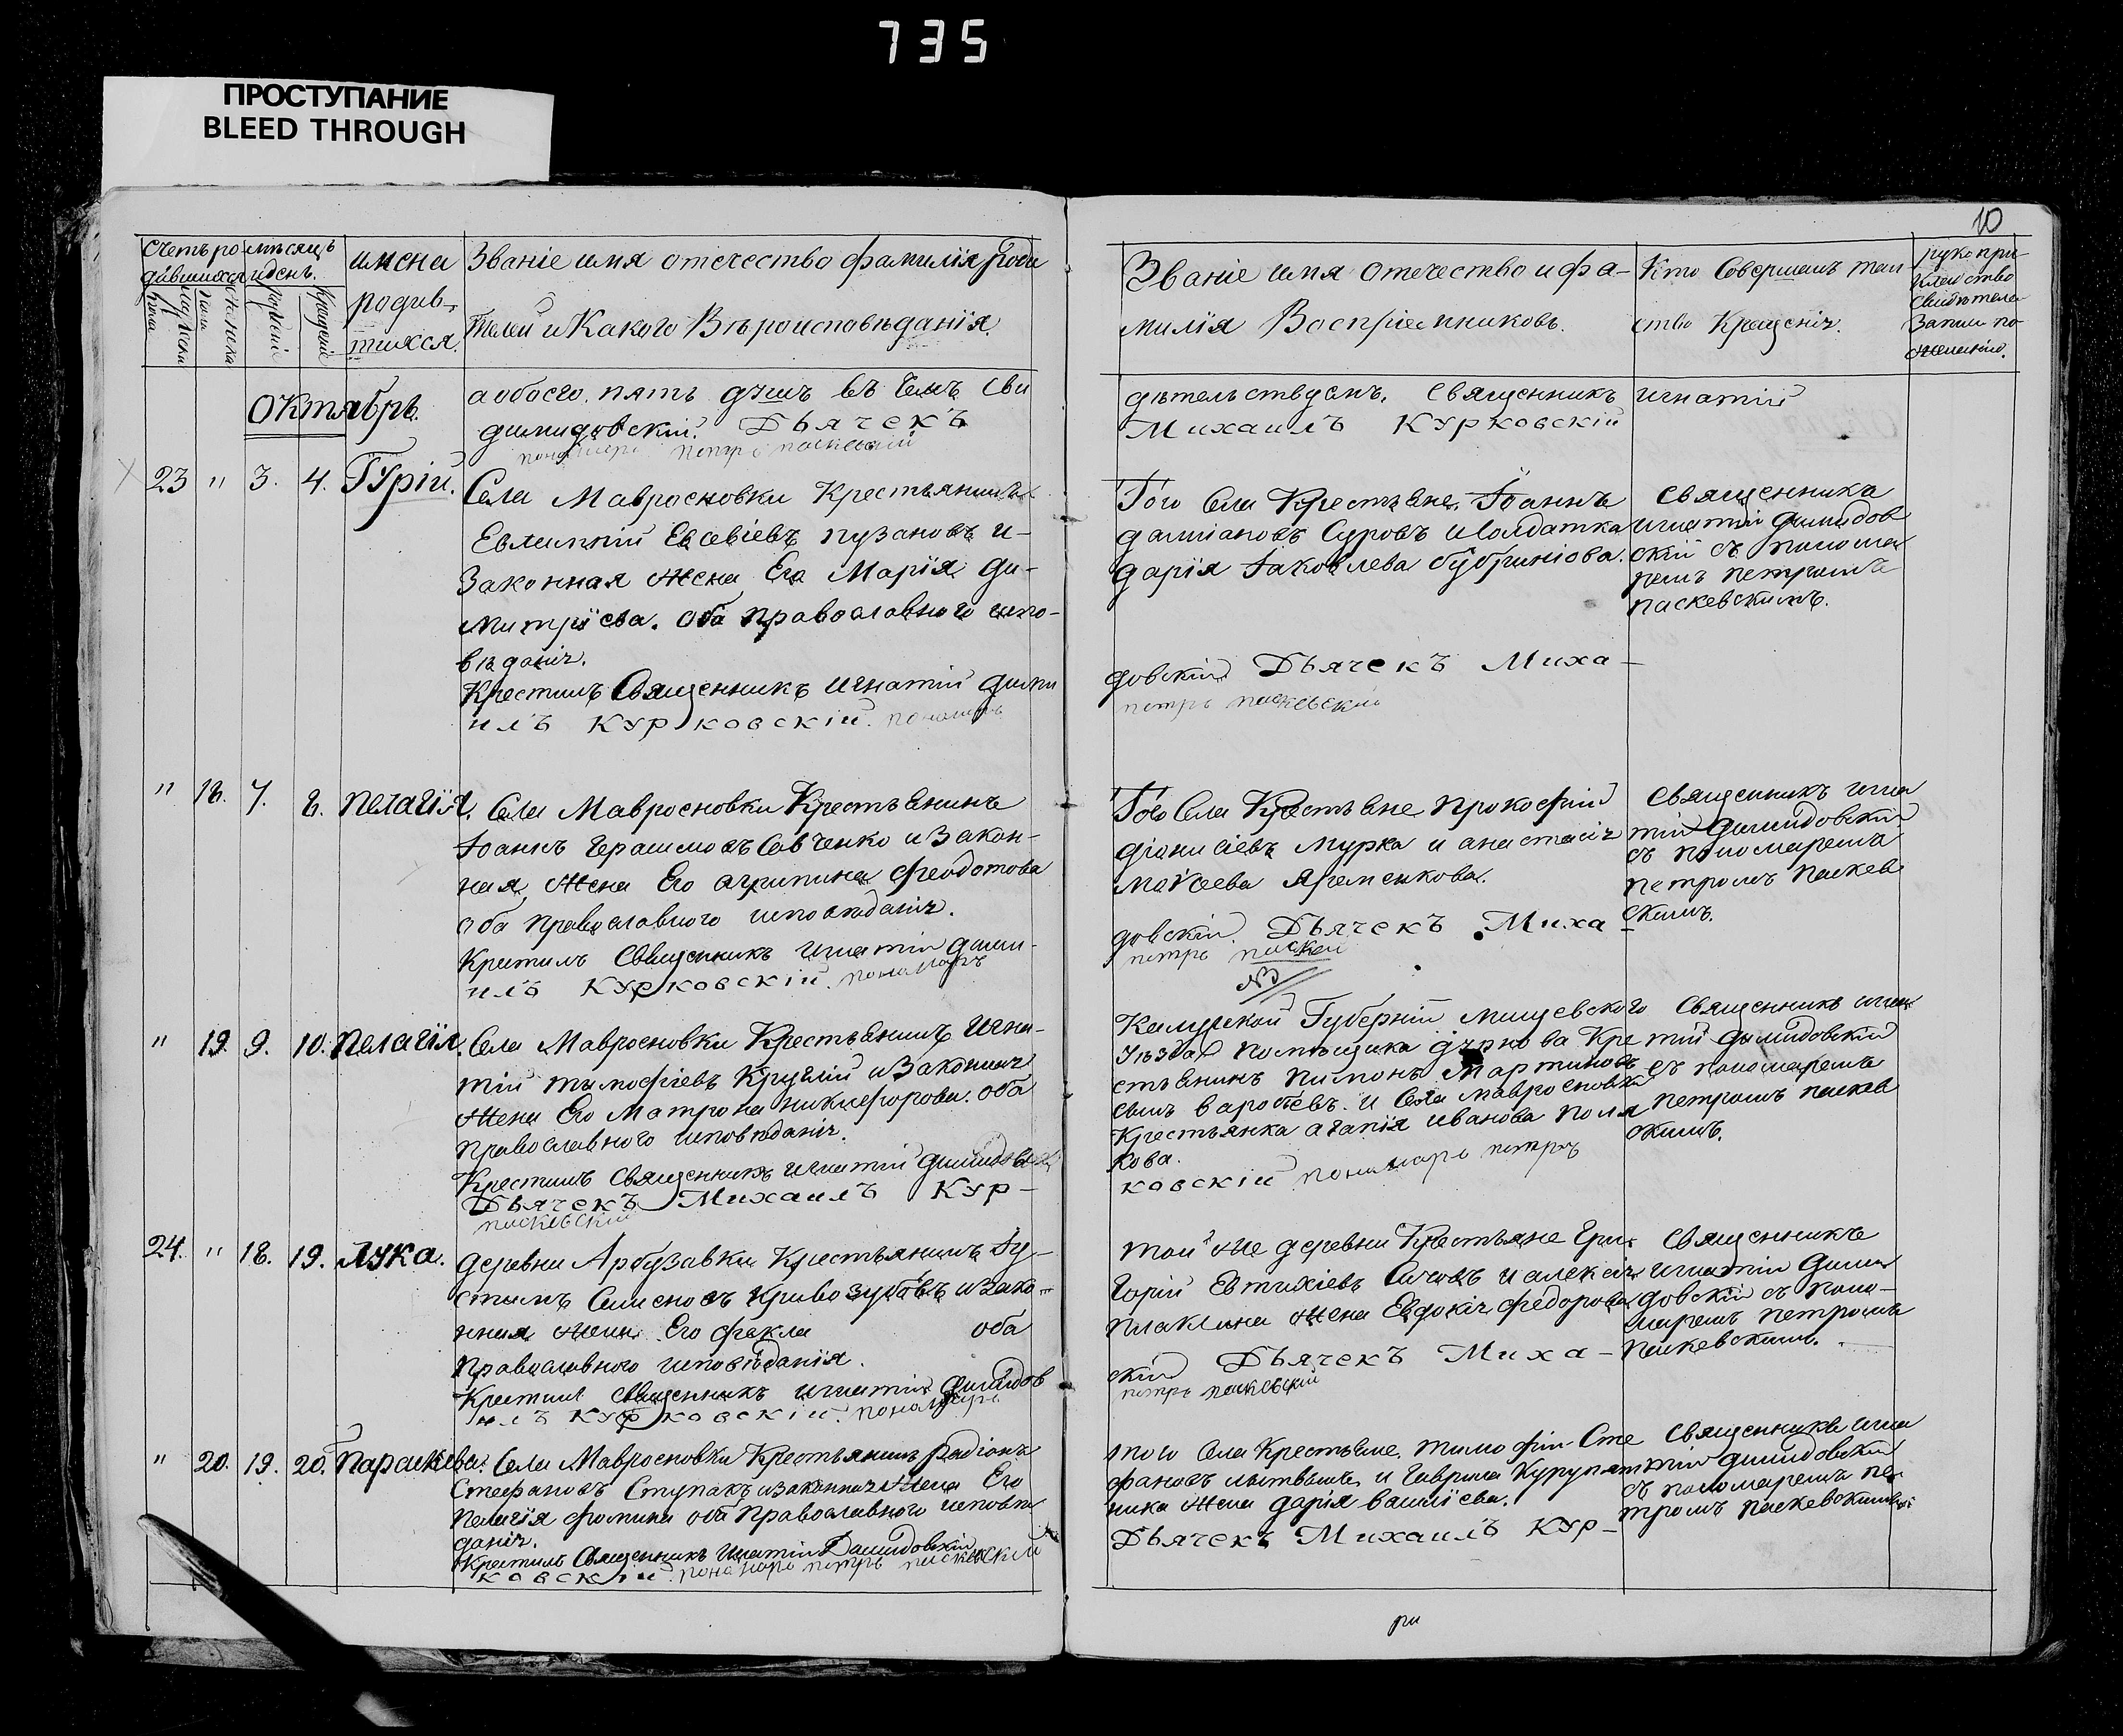 735
ПРОСТУПАНИЕ
BLEED THROUGH
10
Счетъ ро
дившихся
мѣсяцъ
и день.
мужеска
пола
женска
рожденія
крещенія
имена
родив-
шихся.
Званіе имя отечество фамилія роди
телей и Какого Вѣроисповѣданія.
Званіе имя отечество и фа-
милія Воспріемниковъ.
Кто Совершалъ таи
ство Крещенія.
рукопри-
кладство
свидѣтеле
записи по
желанію.
октябрь.
а обоего пять душъ въ чемъ сви
димидовскій. Дьячекъ
пономарь петръ паскевскій
дѣтельствуемъ. священникъ игнатій
Михаилъ Курковскій
23 " 3. 4. Гурій.
Села Мавросновки Крестьянинъ
Евлампій Евсевіевъ пузановъ и-
Законная жена Его Марія ди-
митріева. оба православного испо-
вѣданія.
Крестилъ Священникъ игнатій дими
илъ Курковскій. пономарь
Того Села Крестьяне. Іоаннъ
даміановъ Суровъ и Солдатка
дарія Іаковлева
довскій Дьячекъ Миха-
петръ паскевскій
священникъ
игнатій димидов
скій съ понома
ремъ петромъ
паскевскимъ.
" 18. 7. 8. пелагія.
Села Мавросновки Крестьянинъ
Іоаннъ Герасимовъ Савченко и Закон-
ная жена Его агрипина феодотова
оба православного исповѣданія.
Крестилъ Священникъ игнатій дими-
илъ Курковскій. пономарь
Того Села Крестьяне прокофій
діонисіевъ мурка и анастасія
моѵсеева
довскій. Дьячекъ Миха-
петръ паскев
NB
священникъ игна
тій димидовскій
съ пономаремъ
петромъ паскев
скимъ.
" 19. 9. 10. пелагія.
Села Мавросновки Крестьянинъ игна-
тій тимофіевъ Круглій и Законная
жена Его Матрона никифорова. оба
православного исповѣданія.
Крестилъ священникъ игнатій димидов
Дьячекъ Михаилъ Кур-
паскевскій
Калужской Губерніи мещевского
уѣзда помѣщика дурнова Кре
стьянинъ пимонъ Мартиновъ
сынъ варобьевъ. и Села мавросновки
Крестьянка агапія иванова поля
кова.
ковскій пономарь петръ
священникъ игна
тій димидовскій
съ пономаремъ
петромъ паскев
скимъ.
24. " 18. 19. Лука.
деревни Арбузавки Крестьянинъ Іу-
стинъ Семеновъ Кривозубовъ и зако-
нная жена Его фекла оба
православного исповѣданія.
Крестилъ священникъ игнатій димидов
илъ Курковскій. пономарь
той же деревни Крестьяне Гри-
горій Евтихіевъ и алексія
плаклина жена Евдокія федорова
скій Дьячекъ Миха-
петръ паскевскій
священникъ
игнатій дими
довскій съ поно-
маремъ петромъ
паскевскимъ.
" 20. 19. 20. параскева.
Села Мавросновки Крестьянинъ радіонъ
Стефановъ Ступакъ и законная жена Его
пелагія фомина оба православного исповѣ
данія.
Крестилъ Священникъ игнатій Димидовскій
ковскій. пономарь петръ паскевскій
того Села Крестьяне. тимофій Сте
фановъ литвинъ и Гаврила Курупят
ника жена дарія василіева.
Дьячекъ Михаилъ Кур-
Священникъ игна
тій димидовскій
съ пономаремъ пе-
тромъ паскевскимъ
ри